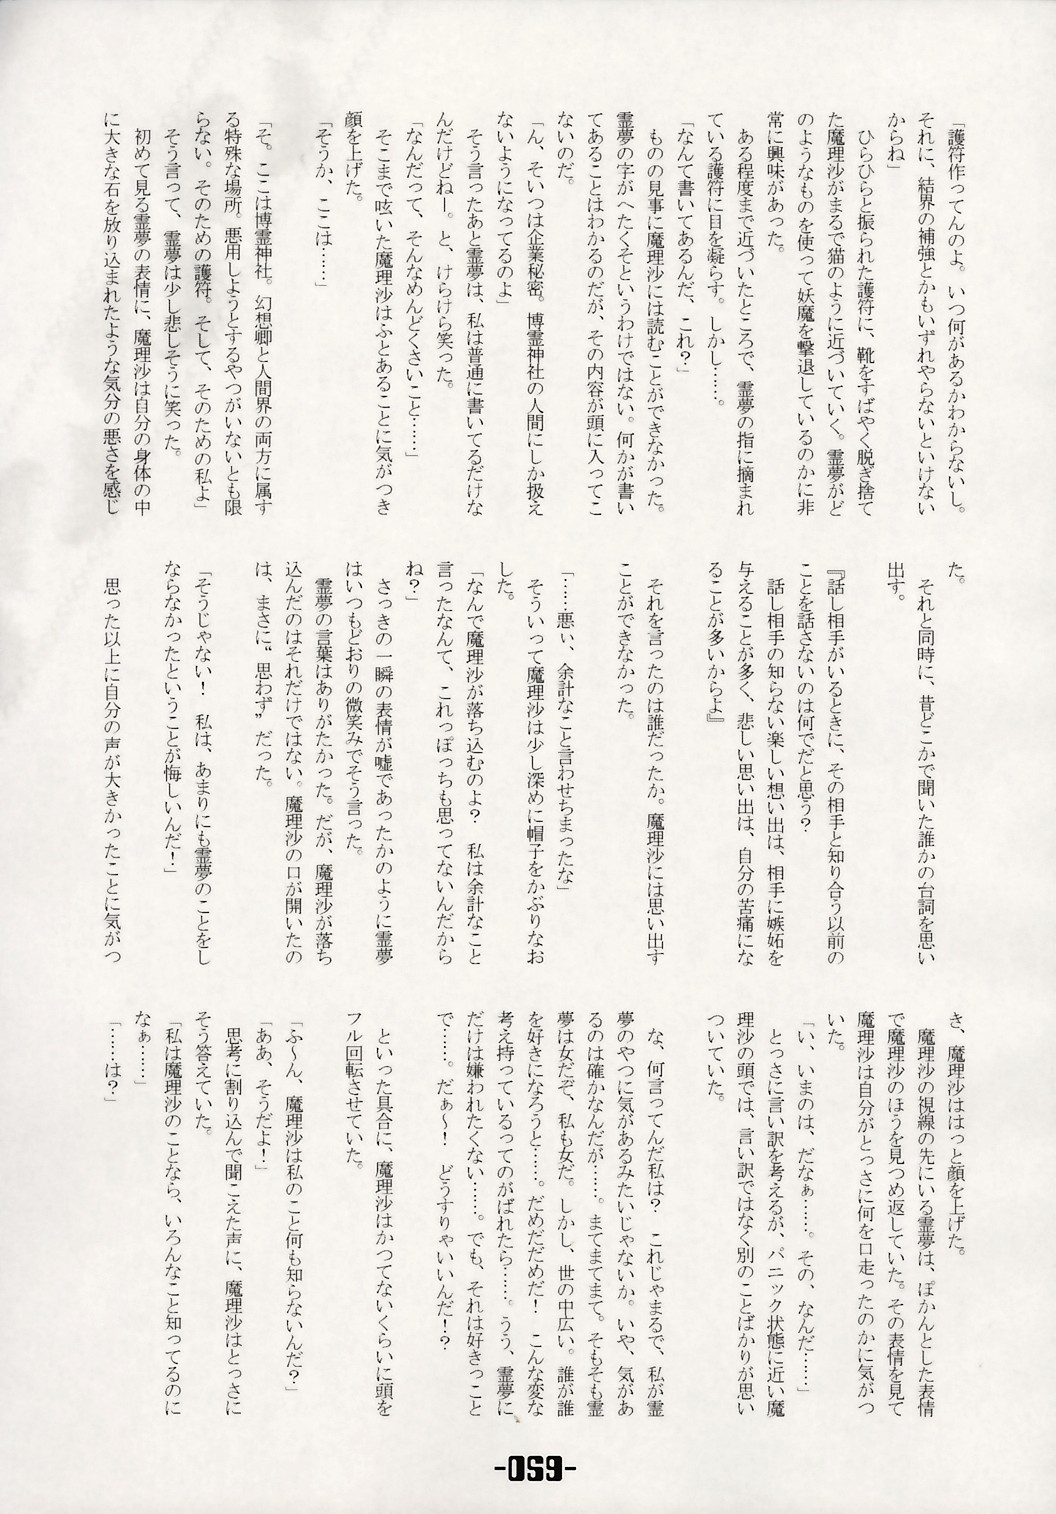 「護符作ってんのよ。いつ何があるかわからないし。
それに、結界の補強とかもいずれやらないといけない
からね」
ひらひらと振られた護符に、靴をすばやく脱ぎ捨て
た魔理沙がまるで猫のように近づいていく。霊夢がど
のようなものを使って妖魔を撃退しているのかに非
常に興味があった。
ある程度まで近づいたところで、霊夢の指に摘まれ
ている護符に目を凝らす。しかし……。
「なんて書いてあるんだ、これ？」
ものの見事に魔理沙には読むことができなかった。
霊夢の字がへたくそというわけではない。何かが書い
てあることはわかるのだが、その内容が頭に入ってこ
ないのだ。
「ん、そいつは企業秘密。博霊神社の人間にしか扱え
ないようになってるのよ」
そう言ったあと霊夢は、私は普通に書いてるだけな
んだけどねー。と、けらけら笑った。
「なんだって、そんなめんどくさいこと……」
そこまで呟いた魔理沙はふとあることに気がつき
顔を上げた。
「そうか、ここは……」
「そ。ここは博霊神社。幻想卿と人間界の両方に属す
る特殊な場所。悪用しようとするやつがいないとも限
らない。そのための護符。そして、そのための私よ」
そう言って、霊夢は少し悲しそうに笑った。
初めて見る霊夢の表情に、魔理沙は自分の身体の中
に大きな石を放り込まれたような気分の悪さを感じ
た。
それと同時に、昔どこかで聞いた誰かの台詞を思い
出す。
『話し相手がいるときに、その相手と知り合う以前の
ことを話さないのは何でだと思う？
話し相手の知らない楽しい想い出は、相手に嫉妬を
与えることが多く、悲しい思い出は、自分の苦痛にな
ることが多いからよ』
それを言ったのは誰だったか。魔理沙には思い出す
ことができなかった。
「……悪ぃ、余計なこと言わせちまったな」
そういって魔理沙は少し深めに帽子をかぶりなお
した。
「なんで魔理沙が落ち込むのよ？　私は余計なこと
言ったなんて、これっぽっちも思ってないんだから
ね？」
さっきの一瞬の表情が嘘であったかのように霊夢
はいつもどおりの微笑みでそう言った。
霊夢の言葉はありがたかった。だが、魔理沙が落ち
込んだのはそれだけではない。魔理沙の口が開いたの
は、まさに“思わず”だった。
「そうじゃない！　私は、あまりにも霊夢のことをし
ならなかったということが悔しいんだ！」
思った以上に自分の声が大きかったことに気がつ
き、魔理沙ははっと顔を上げた。
魔理沙の視線の先にいる霊夢は、ぽかんとした表情
で魔理沙のほうを見つめ返していた。その表情を見て
魔理沙は自分がとっさに何を口走ったのかに気がつ
いた。
「い、いまのは、だなぁ……。その、なんだ……」
とっさに言い訳を考えるが、パニック状態に近い魔
理沙の頭では、言い訳ではなく別のことばかりが思い
ついていた。
な、何言ってんだ私は？　これじゃまるで、私が霊
夢のやつに気があるみたいじゃないか。いや、気があ
るのは確かなんだが……。まてまてまて。そもそも霊
夢は女だぞ、私も女だ。しかし、世の中広い。誰が誰
を好きになろうと……。だめだだめだ！　こんな変な
考え持っているってのがばれたら……。うう、霊夢に
だけは嫌われたくない……。でも、それは好きっこと
で……。だぁ～！　どうすりゃいいんだ！？
といった具合に、魔理沙はかつてないくらいに頭を
フル回転させていた。
「ふ～ん、魔理沙は私のこと何も知らないんだ？」
「ああ、そうだよ！」
思考に割り込んで聞こえた声に、魔理沙はとっさに
そう答えていた。
「私は魔理沙のことなら、いろんなこと知ってるのに
なぁ……」
「……は？」
-059-